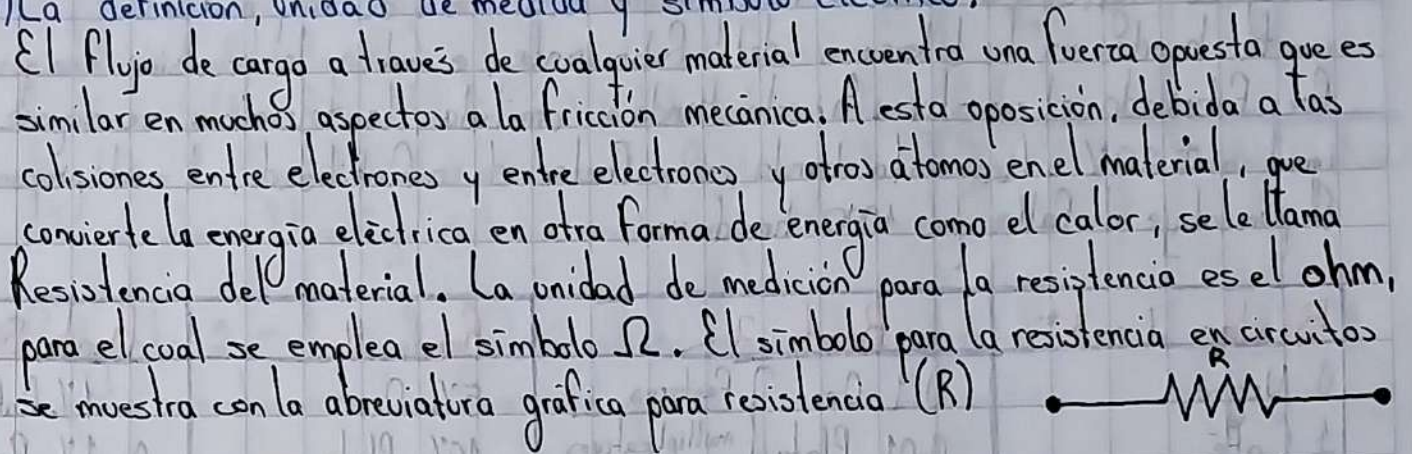 La definición, unidad de medida y símbolo
El flujo de carga a través de cualquier material encuentra una fuerza opuesta que es
similar en muchos aspectos a la fricción mecánica. A esta oposición, debida a las
colisiones entre electrones y entre electrones y otros átomos en el material, que
convierte la energía eléctrica en otra forma de energía como el calor, se le llama
Resistencia del material. La unidad de medición para la resistencia es el ohm,
para el cual se emplea el símbolo Ω. El símbolo para la resistencia en circuitos
se muestra con la abreviatura gráfica para resistencia (R)
R